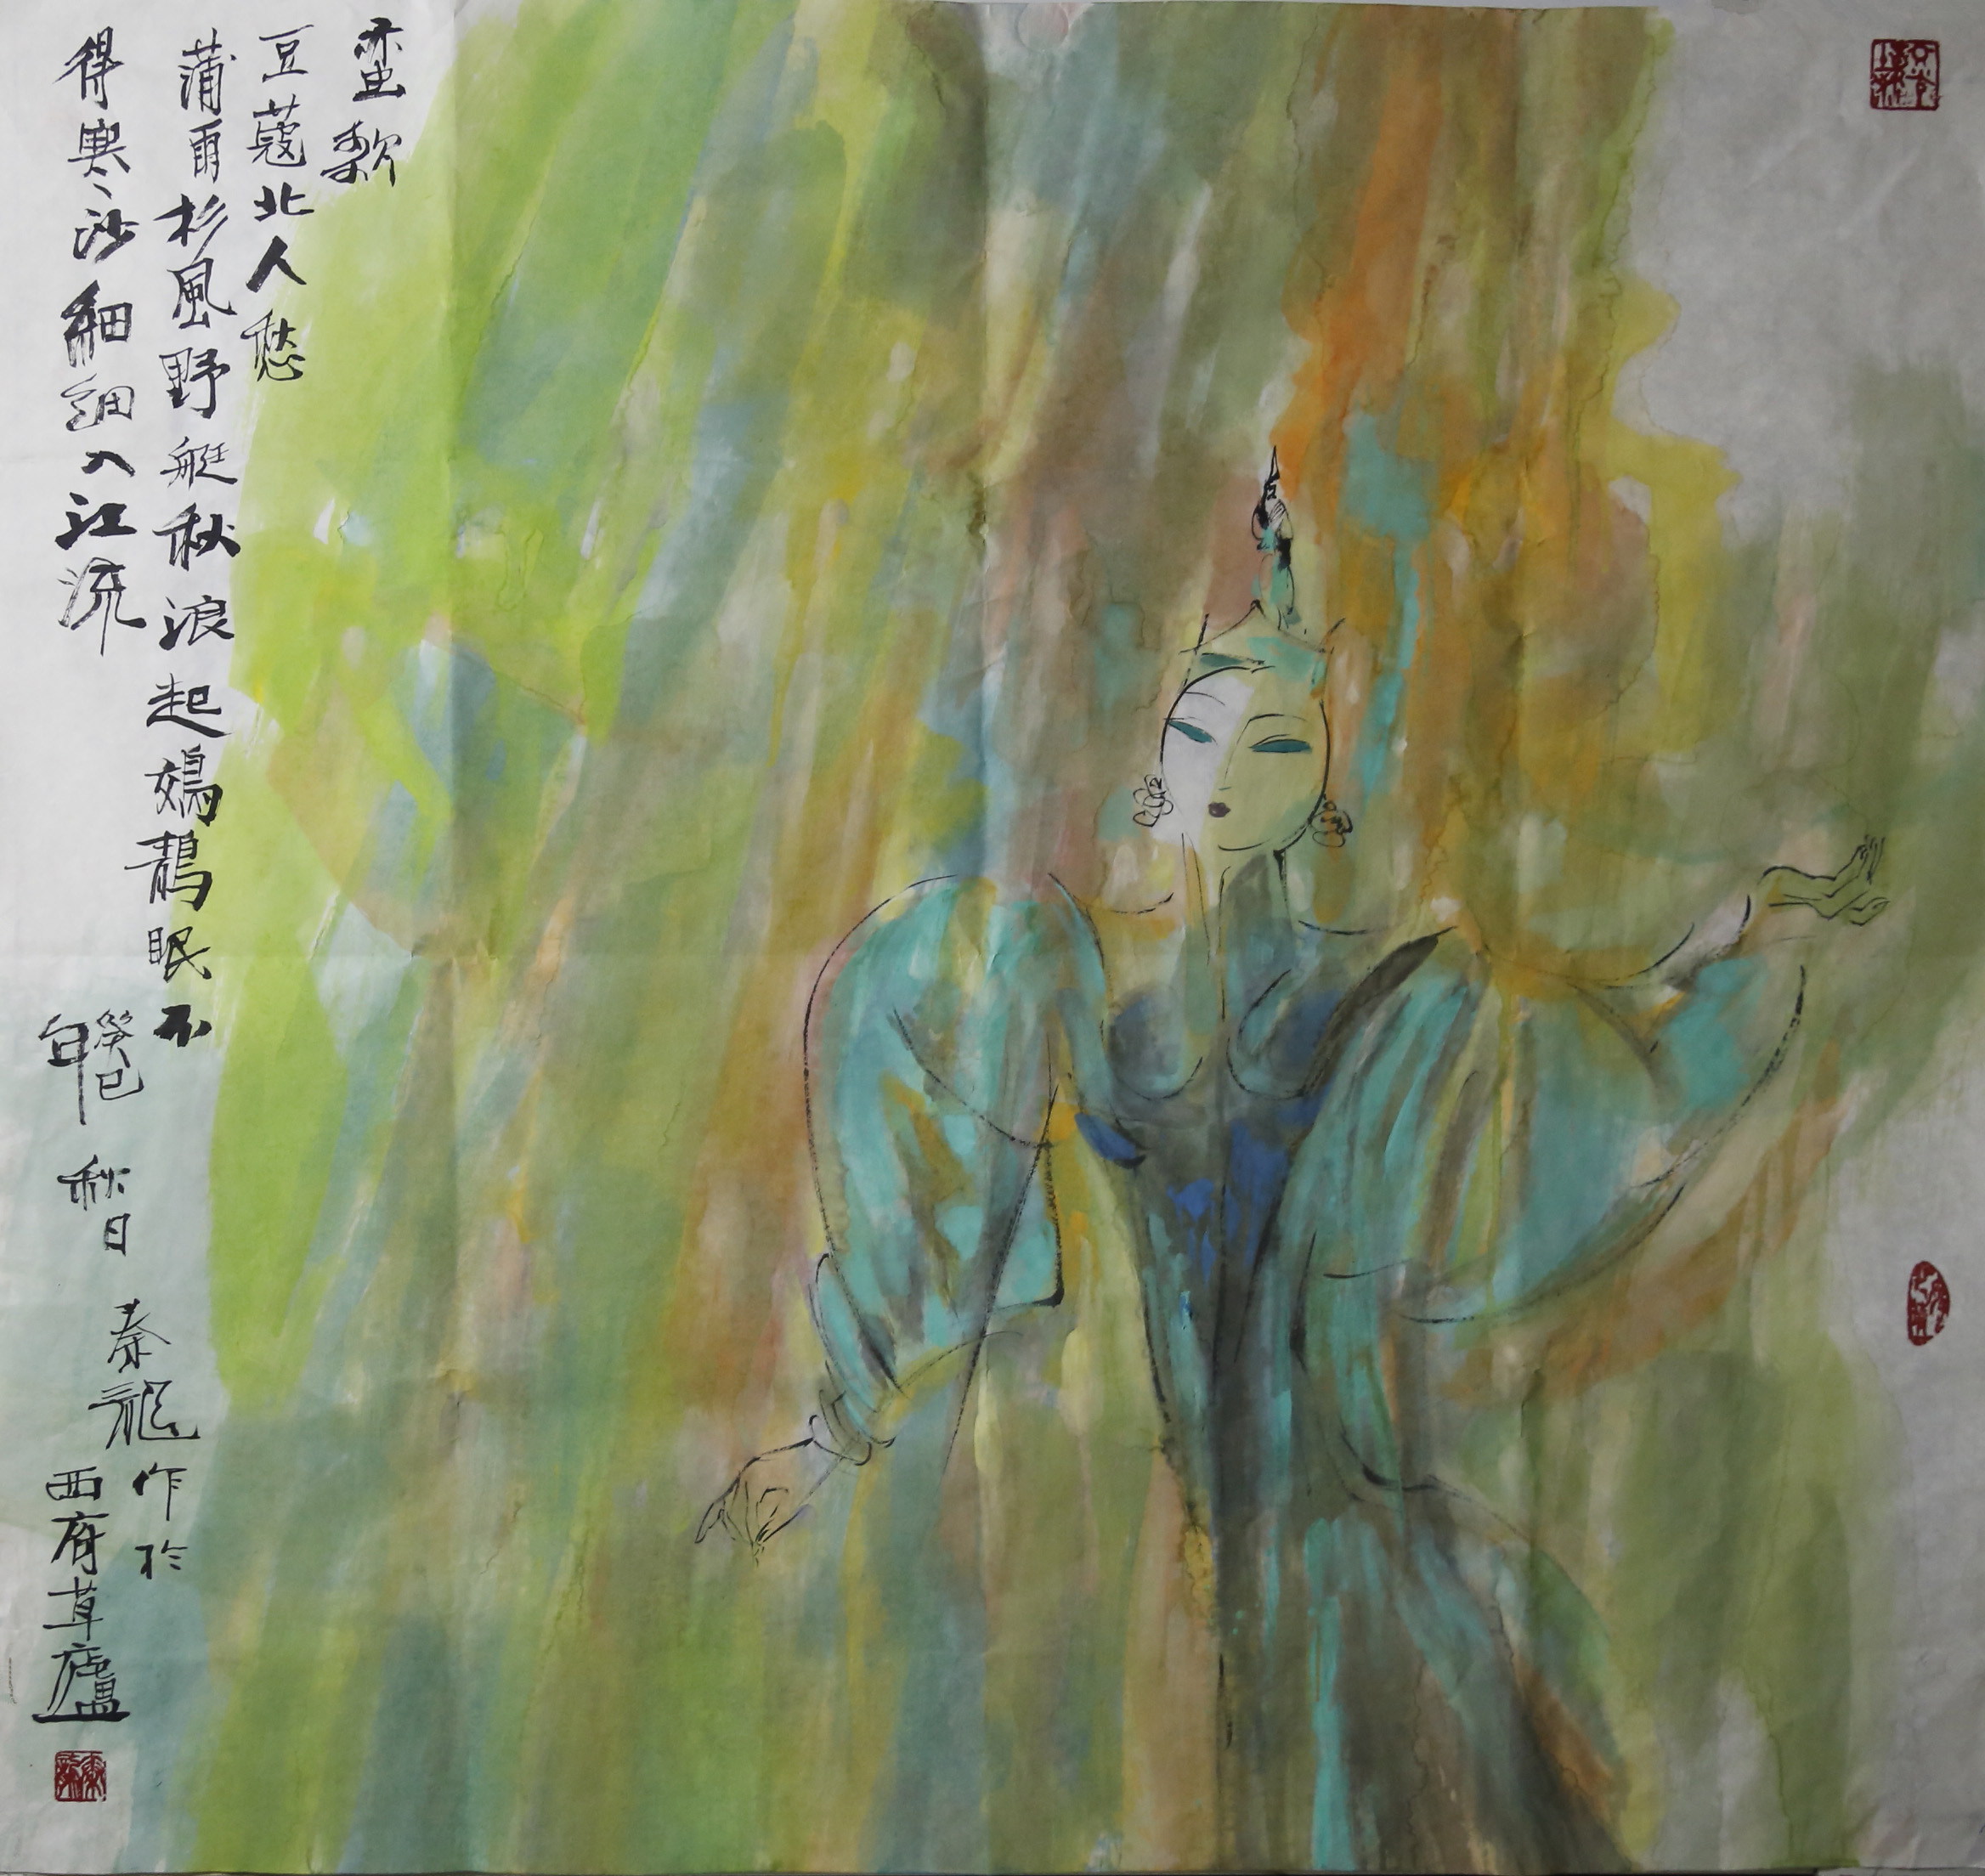 蛮歌
豆蔻北人愁
蒲雨杉風野艇秋浪起鵁鶄眠不
得寒沙細細入江流
癸巳
年
秋日
秦龍
作於
西府草廬